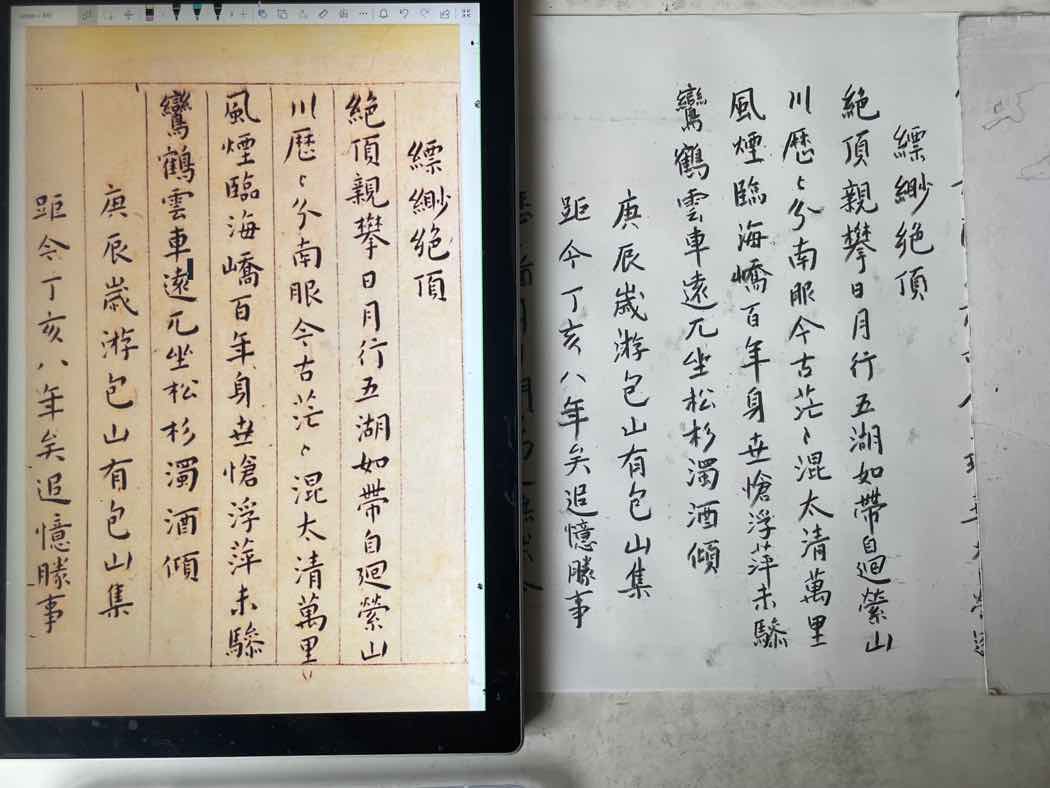 縹緲絶頂
絶頂親攀日月行五湖如帶自迴縈山
川歷〻分南服今古茫〻混太清萬里
風煙臨海嶠百年身世愴浮萍未驂
鸞鶴雲車遠兀坐松杉濁酒傾
庚辰歲游包山有包山集
距今丁亥八年矣追憶勝事
縹緲絶頂
絶頂親攀日月行五湖如帶自迴縈山
川歷〻分南服今古茫〻混太清萬里
風煙臨海嶠百年身世愴浮萍未驂
鸞鶴雲車遠兀坐松杉濁酒傾
庚辰歲游包山有包山集
距今丁亥八年矣追憶勝事